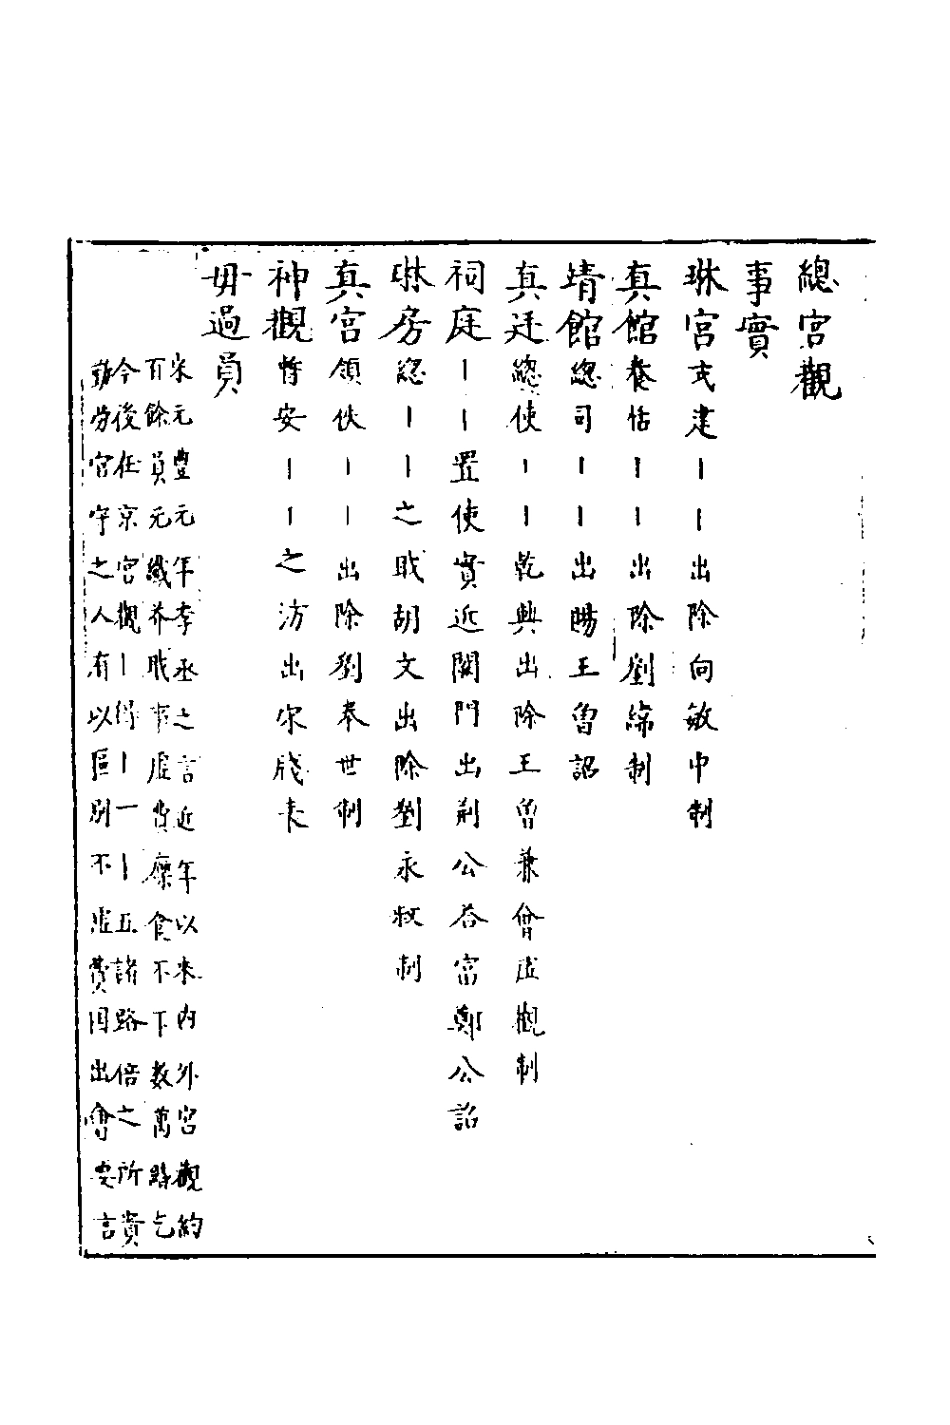 總宮觀
事實
琳宮式建丨丨出除向敏中制
真館養恬丨丨出除劉綜制
靖館總司丨丨出賜王曾詔
真廷總使丨丨乾興出除王曾兼會虛觀制
祠庭丨丨置使實近闕門出荆公荅富鄭公詔
琳房總丨丨之職胡文出除劉永叔制
真宮領使丨丨出除劉奉世制
神觀暫安丨丨之訪出宋牋表
毋過員
宋元豐元年李丞之言近年以來內外宮觀約
百餘員元纎芥職事虛費廩食不下數萬緡乞
今後任京宮觀丨得丨一丨五諸路倍之所貴
勤勞官守之人有以區別不虛費因出會要言